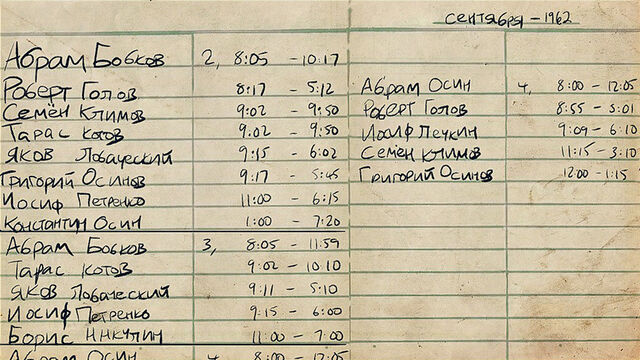 сентября - 1962
Абрам Бобков 2, 8:05 - 10:17
Роберт Голов 8:17 - 5:12
Семён Климов 9:02 - 9:50
Тарас Котов 9:02 - 9:50
Яков Лобаческий 9:15 - 6:02
Григорий Осинов 9:17 - 5:45
Иосиф Петренко 11:00 - 6:15
Константин Осин 1:00 - 7:20
Абрам Бобков 3, 8:05 - 11:59
Тарас Котов 9:02 - 10:10
Яков Лобаческий 9:11 - 5:10
Иосиф Петренко 9:15 - 6:00
Борис 11:00 - 7:00
Абрам Осин 4, 8:00 - 12:05
Абрам Осин 4, 8:00 - 12:05
Роберт Голов 8:55 - 5:01
Иосиф Печкин 9:09 - 6:10
Семён Климов 11:15 - 3:10
Григорий Осинов 12:00 - 1:15